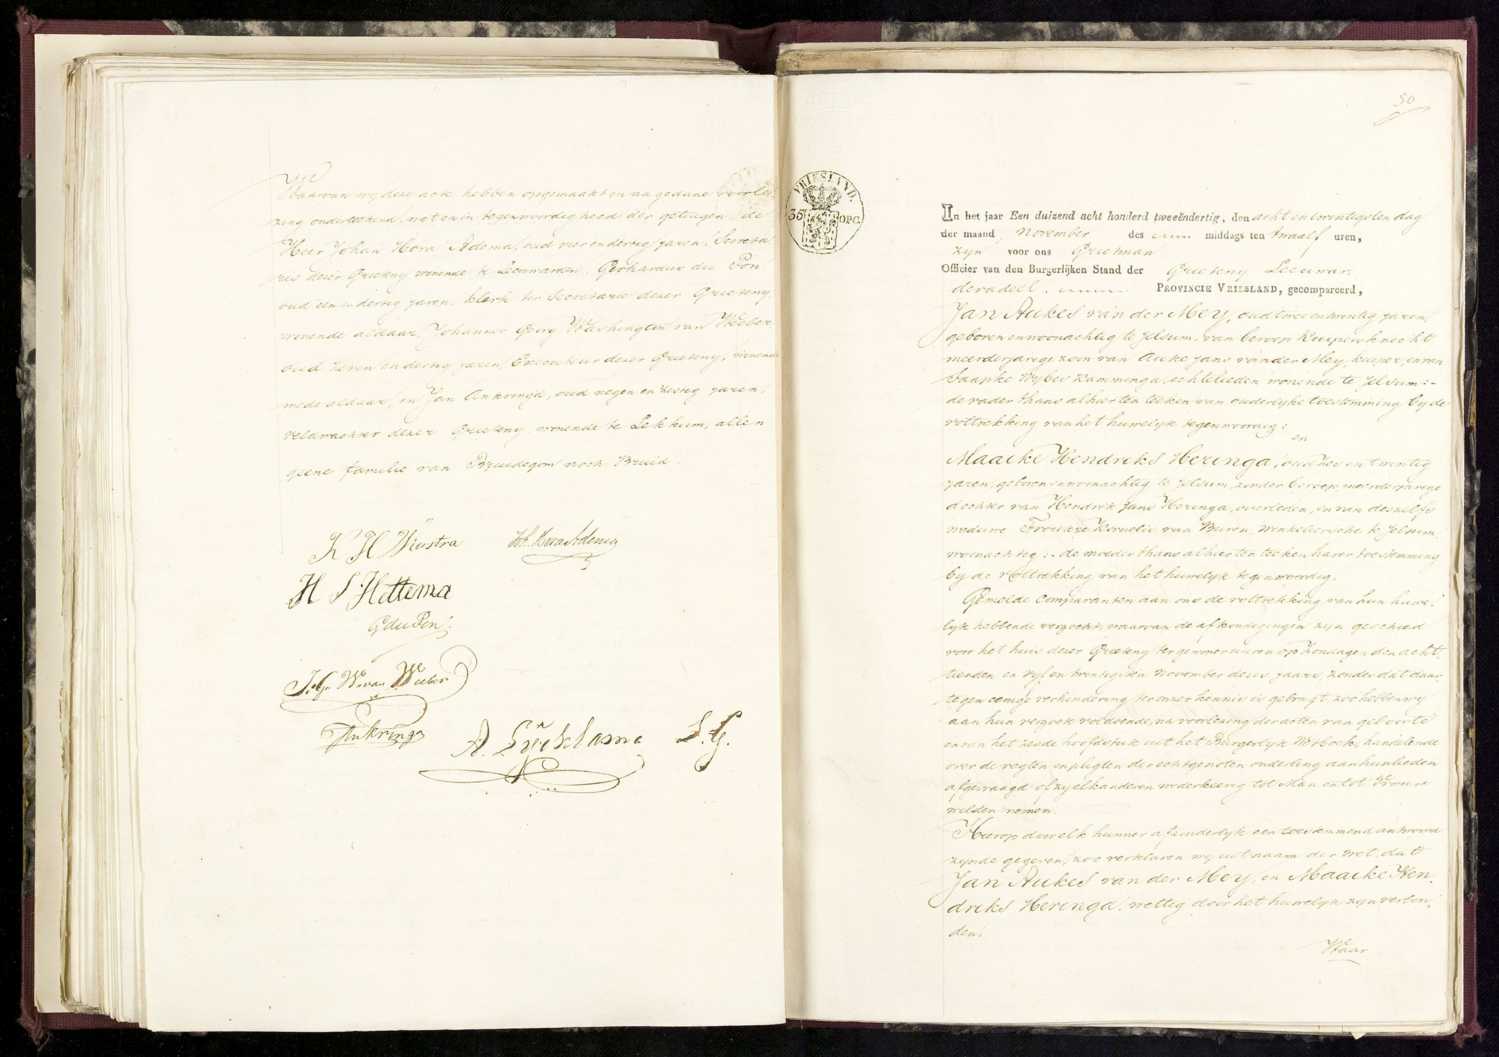 Waarvan wij deze acte hebben opgemaakt en na gedane voorle-
zing onderteekend, met en in tegenwoordigheid der getuigen, de
Heer Johan Hora Adema, oud vier en dertig jaren, Secreta-
ris dezer Grieteny wonende te Leeuwarden, Gerhardus du Pon
oud een en dertig jaren, klerk ter Secretarie dezer Grieteny,
wonende aldaar, Johannes Georg Washington van Weeber
oud zeven en dertig jaren, Executeur dezer Grieteny, wonende
mede aldaar, en Jan Ankringa, oud negen en zestig jaren,
veldwachter dezer Grieteny wonende te Lekkum, allen
geene familie van Bruidegom noch Bruid.
K H Wierstra
H S Hettema
G du Pon
J. G. W. van Weeber
J Ankringa
S. G.
50
VRIESLAND.
35 OPC.
In het jaar Een duizend acht honderd tweeëndertig, den acht en twentigsten dag
der maand November des middags ten twaalf uren,
zyn voor ons Grietman
Officier van den Burgerlijken Stand der Grieteny Leeuwar-
deradeel. PROVINCIE VRIESLAND, gecompareerd,
Jan Aukes van der Mey, oud twee en twentig jaren,
geboren en woonachtig te Jelsum, van beroep Kuipersknecht
meerderjarige zoon van Auke Jans van der Mey, kuiper, en van
Baapke Wybes Kamminga, echtelieden wonende te Jelsum:-
de vader thans alhier ten teeken van ouderlyke toestemming by de
voltrekking van het huwelyk tegenwoordig;
en
Maaike Hendriks Heringa, oud zes en twentig
jaren, geboren en woonachtig te Jelsum, zonder beroep, meerderjarige
dochter van Hendrik Jans Heringa, overleden, en van deszelfs
weduwe Kornelis van Buren, winkeliersche te Jelsum
woonachtig: de moeder thans alhier ten teeken harer toestemming
by de voltrekking van het huwelyk tegenwoordig.
Gemelde comparanten aan ons de voltrekking van hun huwe-
lyk hebbende verzocht, waarvan de afkondigingen zyn geschied
voor het huis dezer Grieteny ter gewone uuren op Zondagen den acht-
tienden en vyf en twentigsten November dezes jaars, zonder dat daar
tegen eenige verhindering ter onzer kennis is gebragt, zoo hebben wy
aan hun verzoek voldoende, na voorlezing der acten van geboorte
en van het zesde hoofdstuk uit het Burgerlyk Wetboek, handelende
over de regten en pligten der echtgenoten onderling aan hun lieden
afgevraagd of zy elkanderen wederkeerig tot Man en tot Vrouw
wilden nemen.
Hierop door elk hunner afzonderlyk een toestemmend antwoord
zynde gegeven, zoo verklaren wy uit naam der Wet, dat
Jan Aukes van der Mey, en Maaike Hen-
driks Heringa, wettig door het huwelyk zyn verbon-
den;
Waar